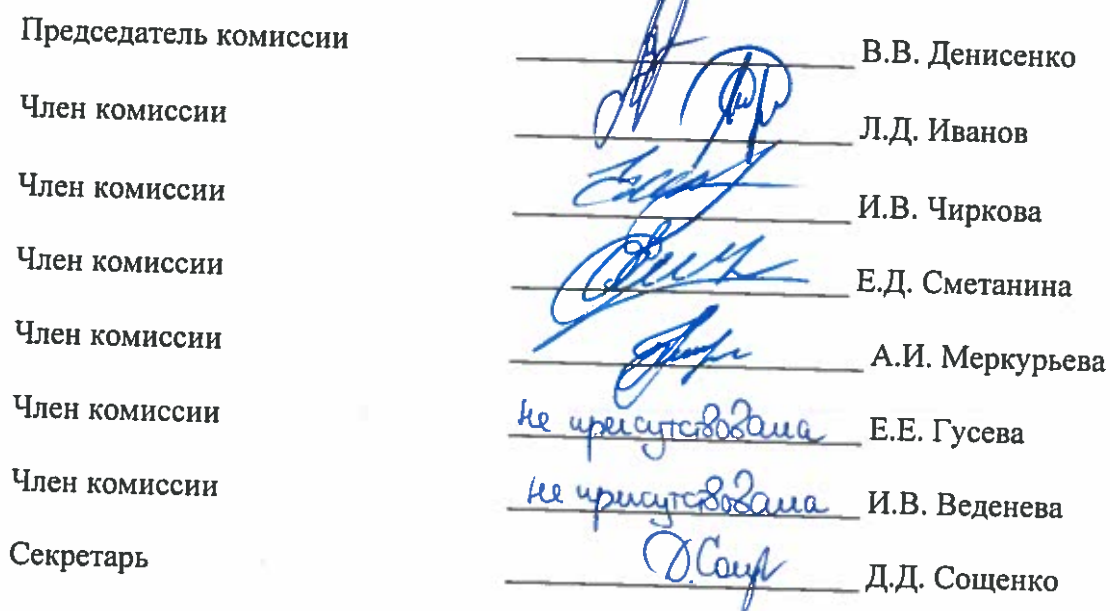 Председатель комиссии В.В. Денисенко
Член комиссии Л.Д. Иванов
Член комиссии И.В. Чиркова
Член комиссии Е.Д. Сметанина
Член комиссии А.И. Меркурьева
Член комиссии не присутствовала Е.Е. Гусева
Член комиссии не присутствовала И.В. Веденева
Секретарь Д.Д. Сощенко